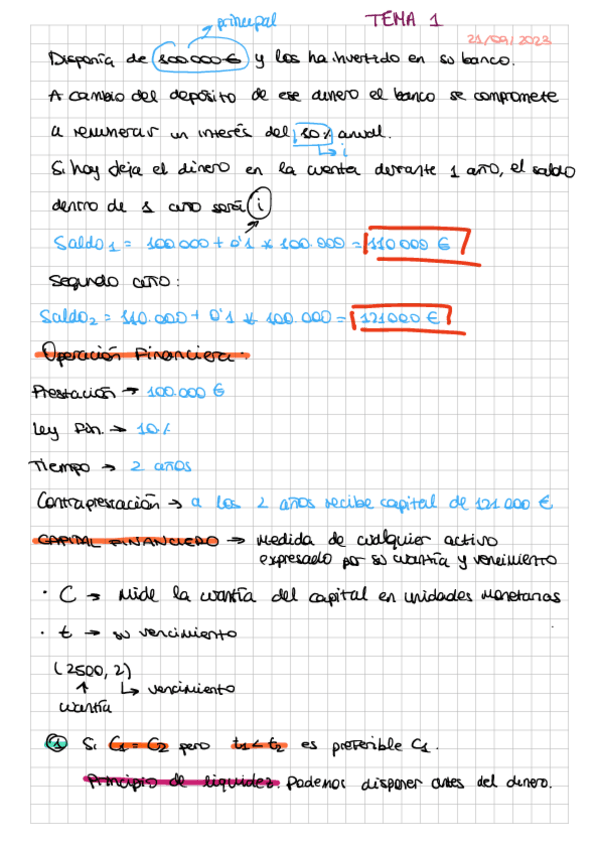 principal
TEMA 1
21/09/2023
Disponía de 100.000 € y los ha invertido en su banco.
A cambio del depósito de ese dinero el banco se compromete
a remunerar un interés del 10% anual.
i
Si hoy deja el dinero en la cuenta durante 1 año, el saldo
dentro de 1 año será i
Saldo1 = 100.000 + 0'1 * 100.000 = 110000 €
Segundo año:
Saldo2 = 110.000 + 0'1 * 100.000 = 121000 €
Operación Financiera:
Prestación → 100.000 €
Ley Fin. → 10%
Tiempo → 2 años
Contraprestación → a los 2 años recibe capital de 121000 €
CAPITAL FINANCIERO → Medida de cualquier activo
expresado por su cuantía y vencimiento
· C → Mide la cuantía del capital en unidades Monetarias
· t → su vencimiento
(2500, 2)
↑ ↳ vencimiento
cuantía
1 Si C1 = C2 pero t1 < t2 es preferible C1.
Principio de liquidez. Podemos disponer antes del dinero.